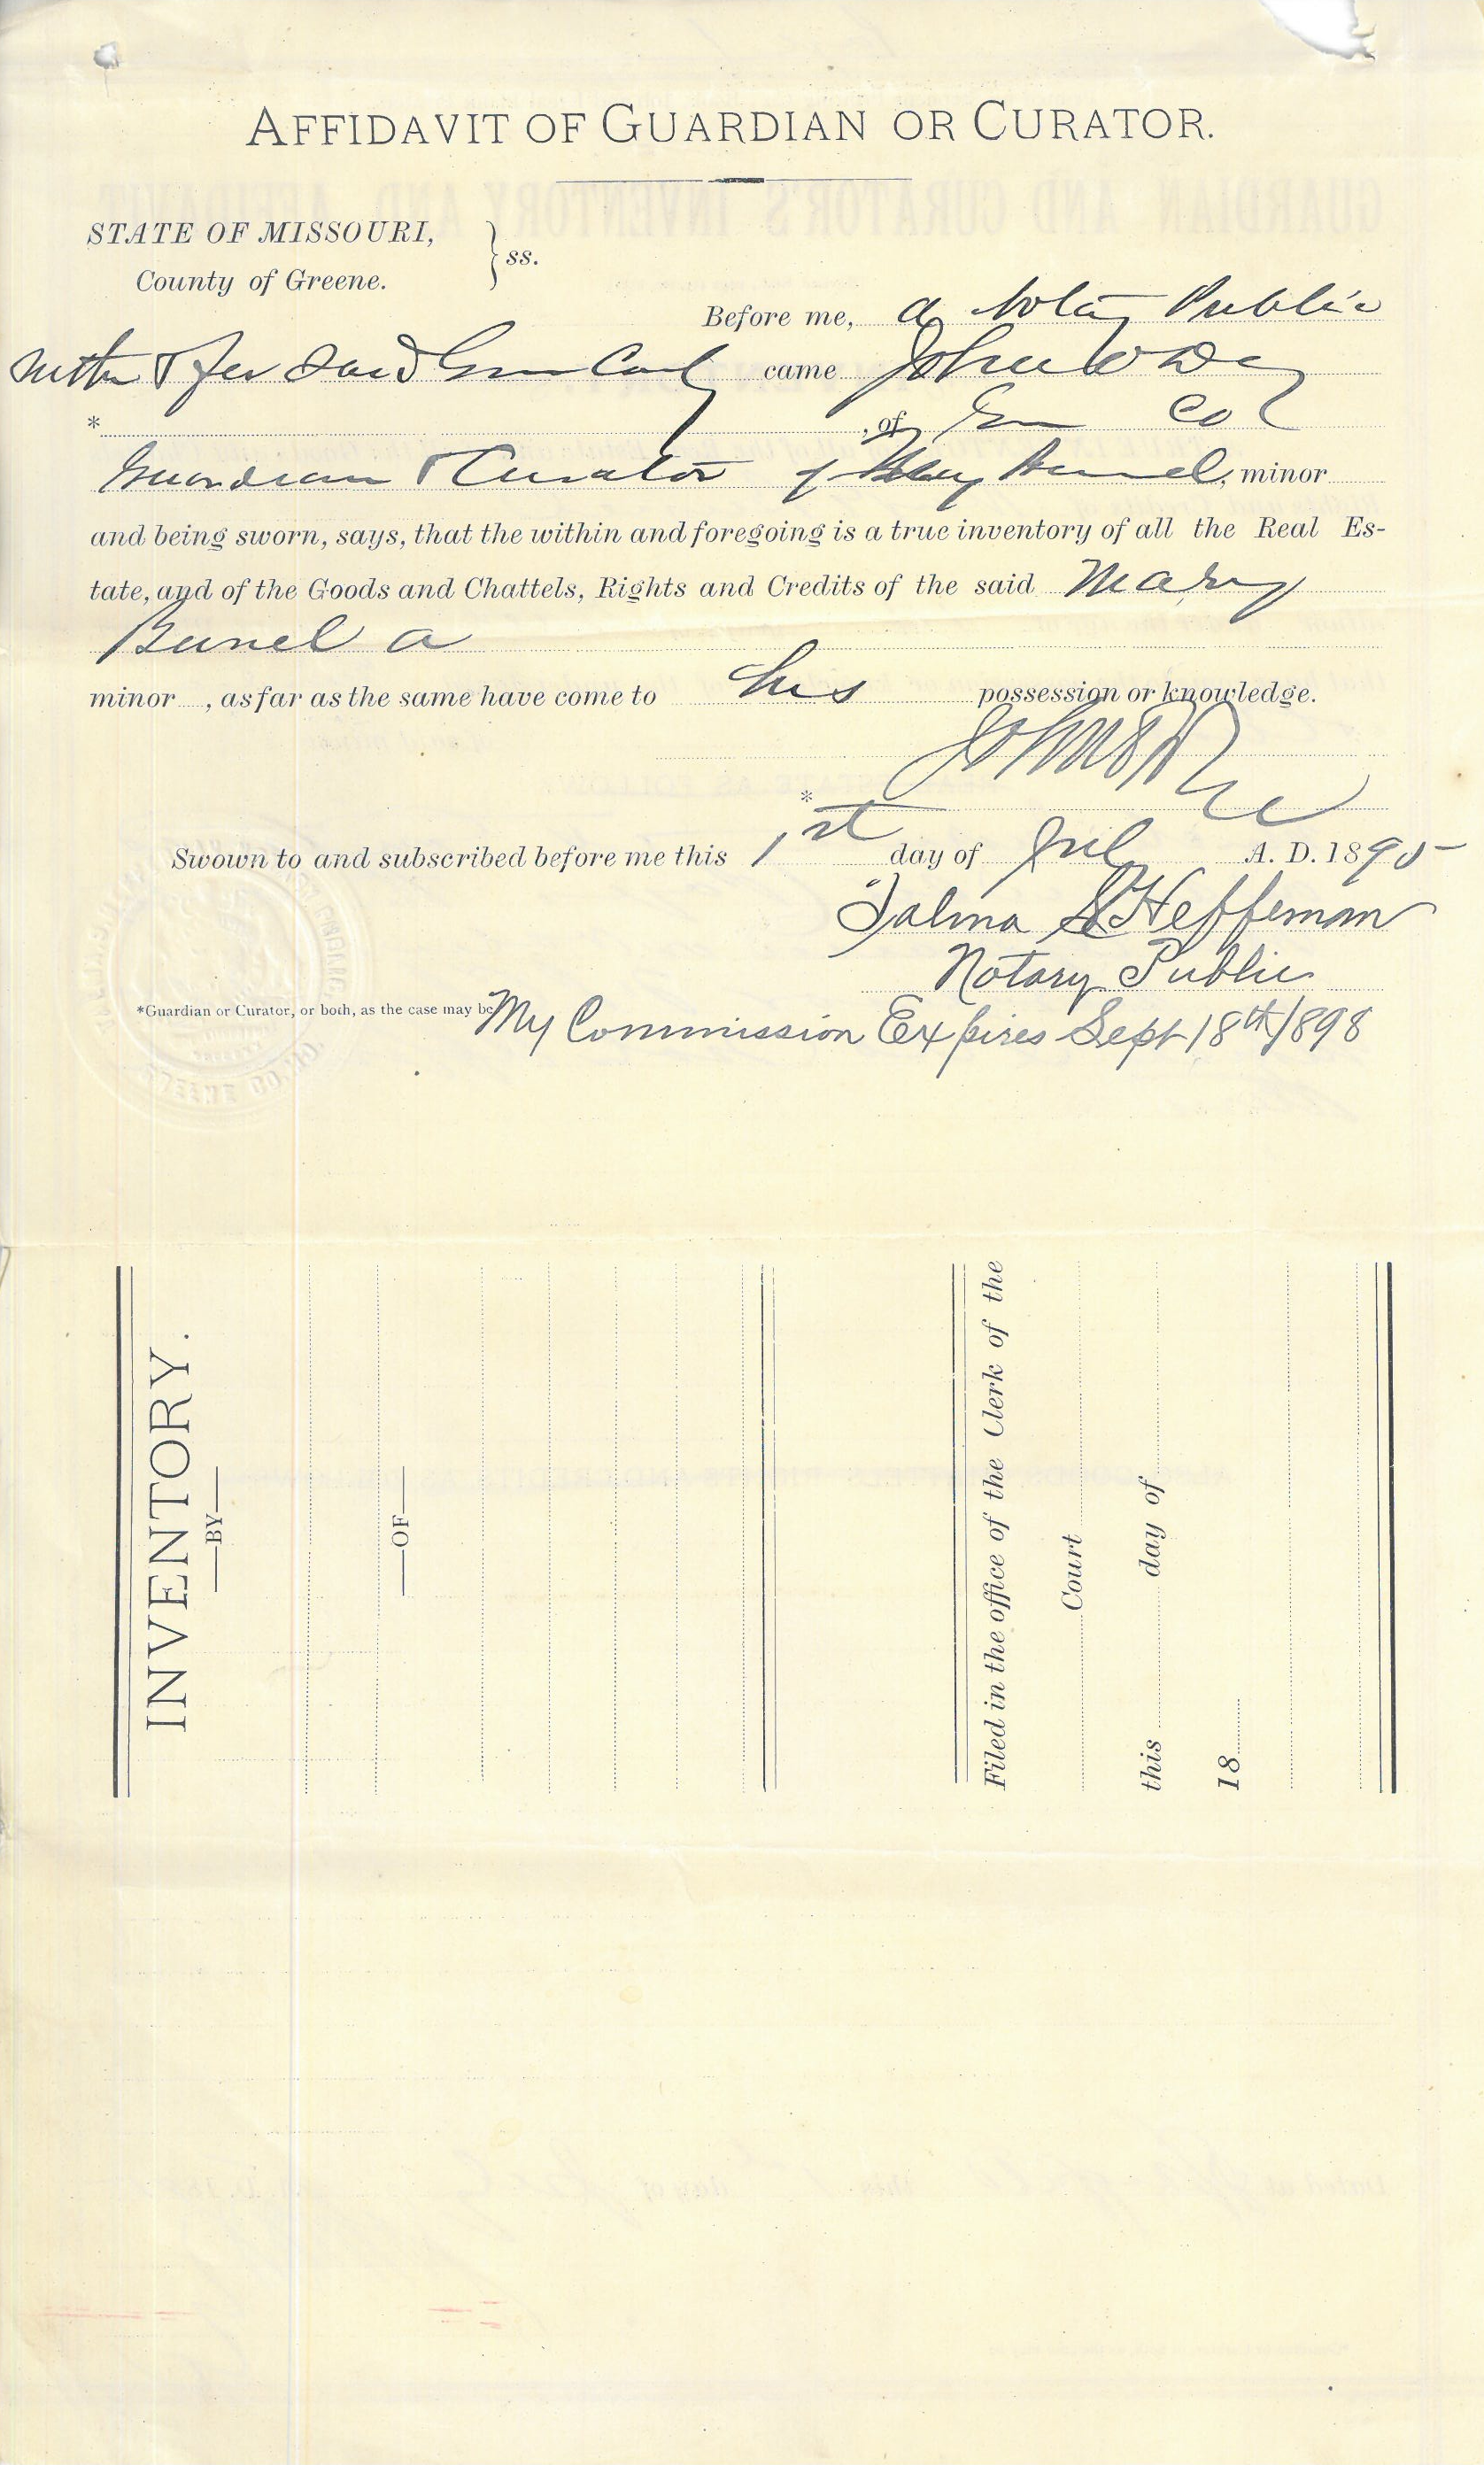 AFFIDAVIT OF GUARDIAN OR CURATOR.
STATE OF MISSOURI,
County of Greene. } ss.
Before me, a Notary Public
within & for said Green County came John
* , of Co
Guardian & Curator of Mary Bunel, minor
and being sworn, says, that the within and foregoing is a true inventory of all the Real Es-
tate, and of the Goods and Chattels, Rights and Credits of the said Mary
Bunel a
minor , as far as the same have come to his possession or knowledge.
*
Swown to and subscribed before me this 1st day of A. D. 1895
Heffernan
Notary Public
*Guardian or Curator, or both, as the case may be
My Commission Expires Sept 18th 1898
INVENTORY.
—BY—
—OF—
Filed in the office of the Clerk of the
Court
this day of
18